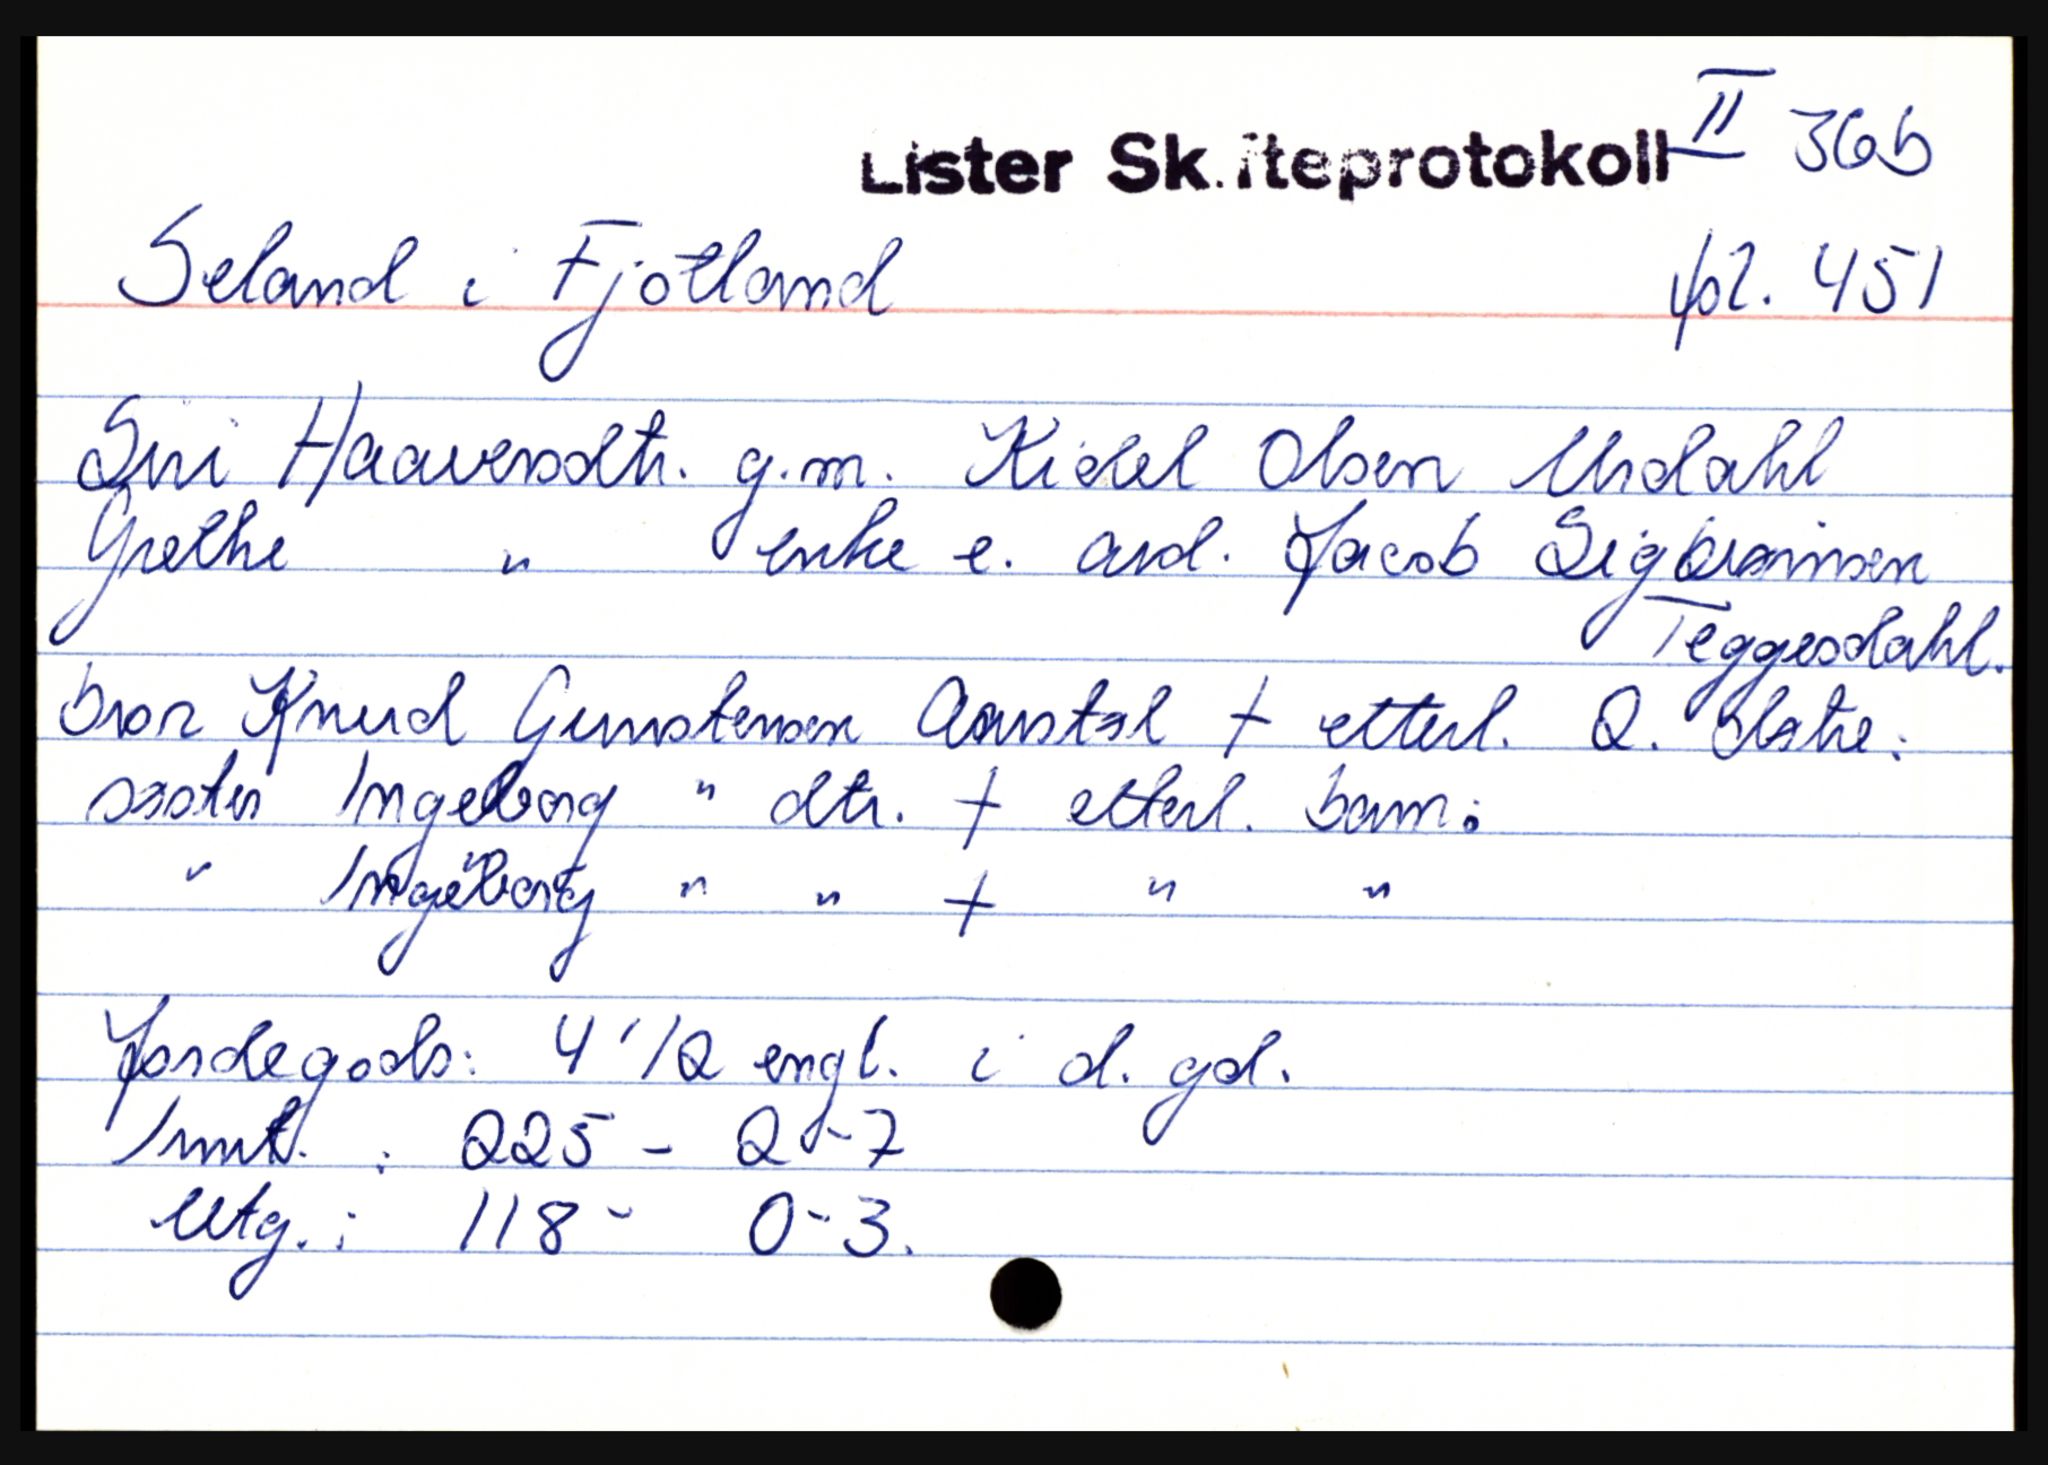 Lister Skifteprotokoll II 36b
Seland i Fjotland fol. 451
Siri Haaversdtr. g.m. Kidel Olsen Urdahl
Grethe " enke e. avd. Jacob Sigbiørnsen
Teggesdahl.
bror Knud Gunstensen Aamstøl † etterl. 2. døtre:
søster Ingeborg " dtr. † etterl. barn:
" Ingeborg " " † " "
Jordegods: 4 1/2 engl. i d. gd.
Innt. : 225 - 2 - 7
Utg. : 118 - 0 - 3.